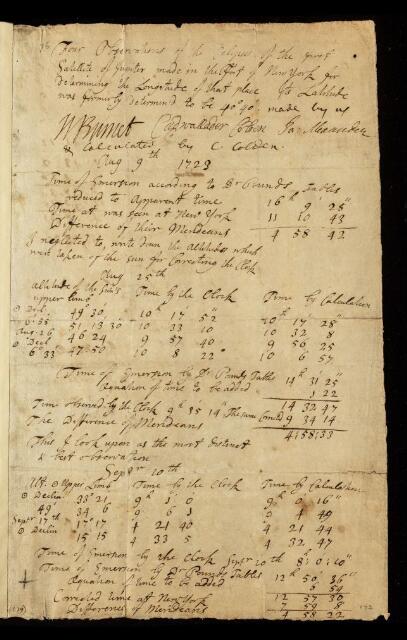 Four Observations of the Eclipses of the first
Satellite of Jupiter made in the Fort of New York for
Determining the Longitude of that place its Latitude
was formerly determin'd to be 40° 40' made by us
W Burnet Cadwallader Colden Ja. Alexander
& Calculated by C Colden.
Aug 9th 1723
Time of Emersion according to Dr Pounds Tables
reduced to Apparent time 16h 9' 25"
Time at was seen at New York 11 10 43
Difference of their Meridians 4 58 42
I neglected to write down the Altitudes which
were taken of the sun for Correcting the Clock
Aug 25th
Altitude of the Sun's upper limb Time by the Clock Time by Calculation
49 30 10h 17' 52" 10h 17' 28"
6 35 51 13 30 10 33 10 10 32 8
Aug 26 46 24 9 57 40 9 56 25
6 33 47 50 10 8 22 10 6 57
Time of Emersion by Dr Pounds Tables 14h 31' 25"
Equation of time to be added 1 22
14 32 47
Time observed by the Clock 9h 35' 14" The same Corrected 9 34 14
The Difference of Meridians 4 58 33
This I look upon as the most distinct
& best observation
Sepbr 10th
Alt. ☉ Upper Limb Time by the Clock Time by Calculation
☉ Declin 33° 21 9h 1' 0 9h 0' 16"
49' 34 6 9 6 1 9 4 49
Sepbr 17th 17° 17 4 21 40 4 21 44
☉ Declin 15 15 4 33 5 4 32 47
Time of Emersion by the Clock Sepbr 10th 8h 0' 10"
Time of Emersion by Dr Pounds Tables 12h 50' 36"
Equation of time to be added 6 54
12 57 30
Corrected time at New York 7 59 8
Difference of Meridians 4 58 22